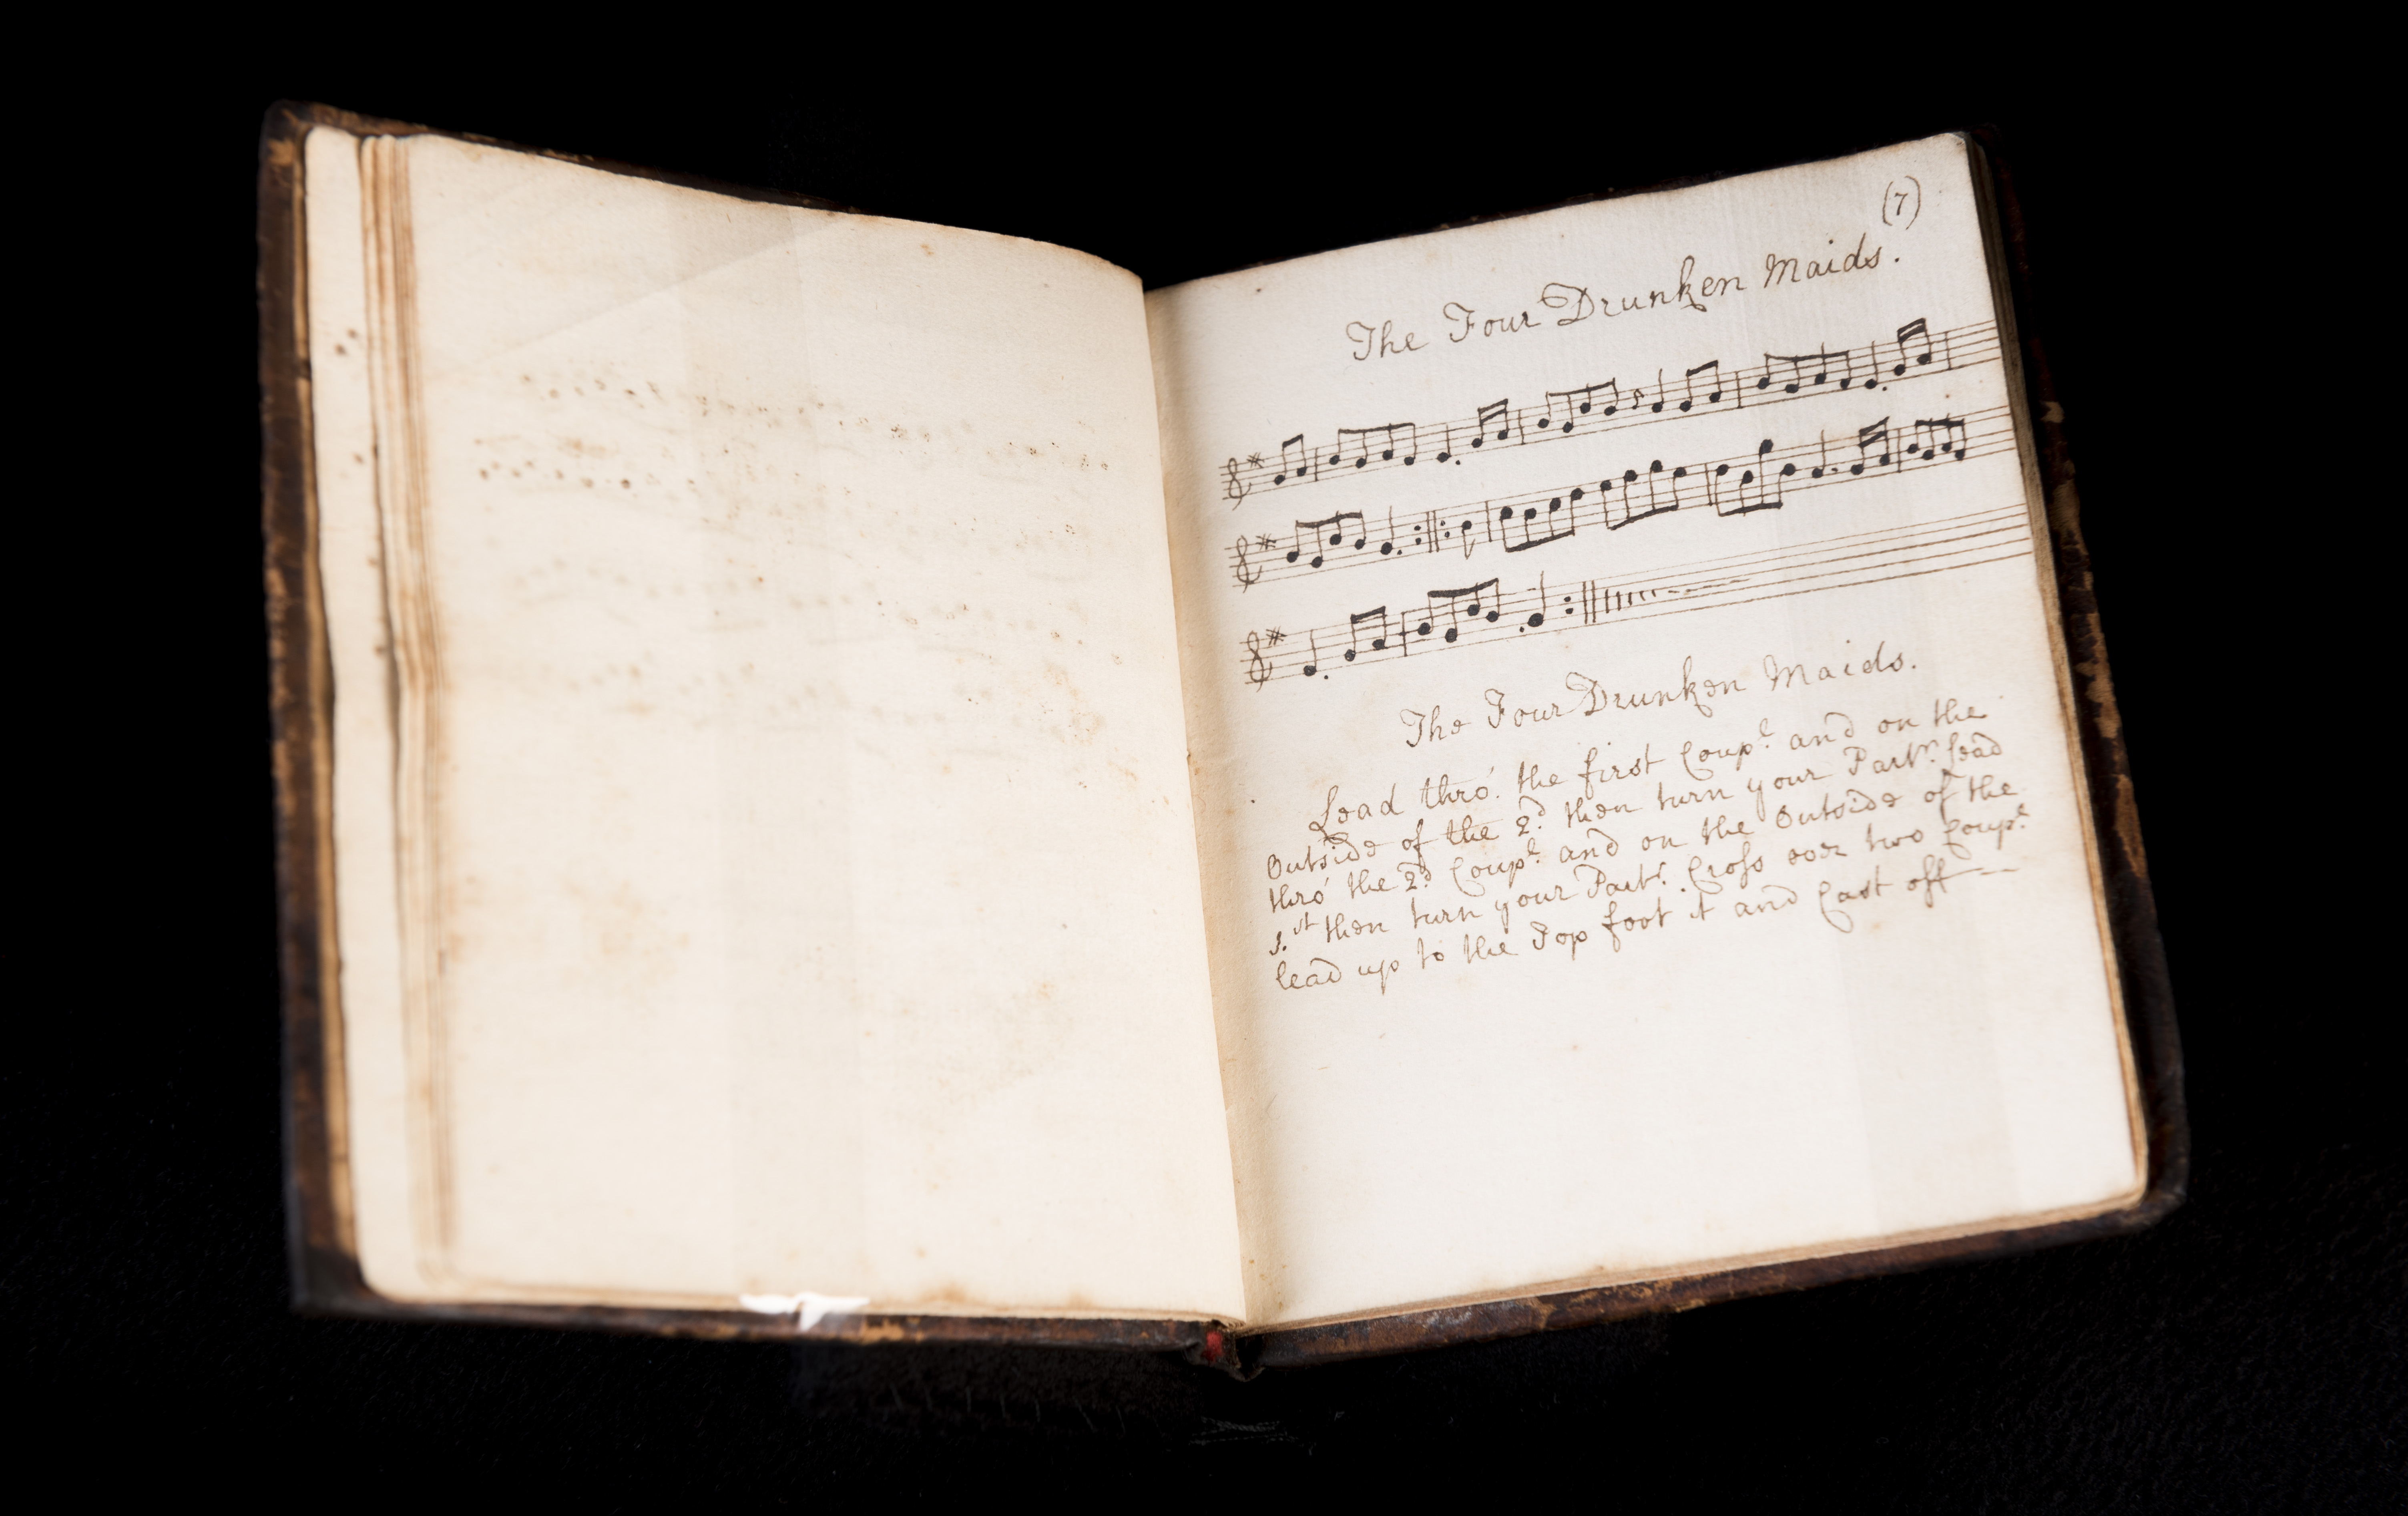 (7)
The Four Drunken Maids.
The Four Drunken Maids.
Lead thro' the first Coup.l and on the
Outside of the 2.d then turn your Part.n lead
thro' the 2.d Coup.l and on the Outside of the
1.st then turn your Part.r Cross over two Coup.l
lead up to the Top foot it and Cast off --